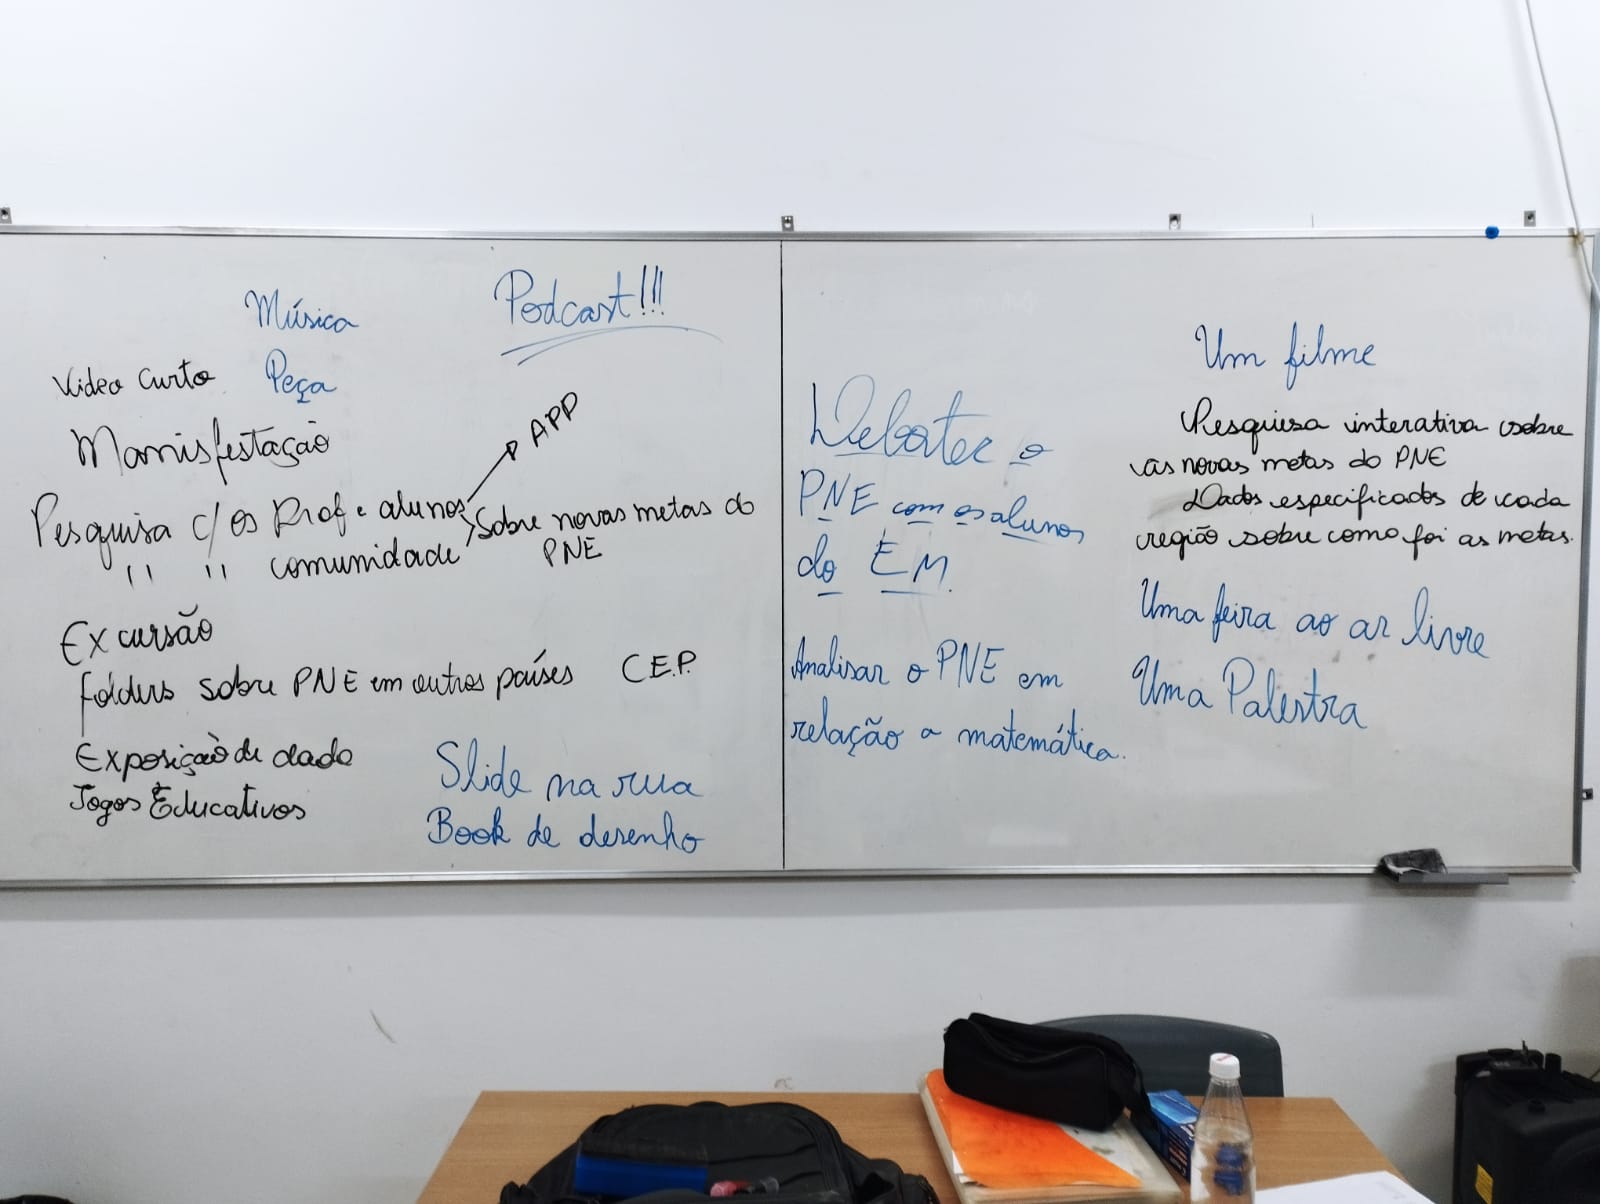 Música
Podcast!!!
Video Curto
Peça
Manisfestação
APP
Pesquisa c/ os Prof e alunos
Sobre novas metas do
PNE
" " comunidade
Excursão
folders sobre PNE em outros países
C.E.P.
Exposição de dado
Jogos Educativos
Slide na rua
Book de desenho
Debater o
PNE com os alunos
do EM.
Analisar o PNE em
relação a matemática.
Um filme
Pesquisa interativa sobre
as novas metas do PNE
Dados especificados de cada
região sobre como foi as metas.
Uma feira ao ar livre
Uma Palestra